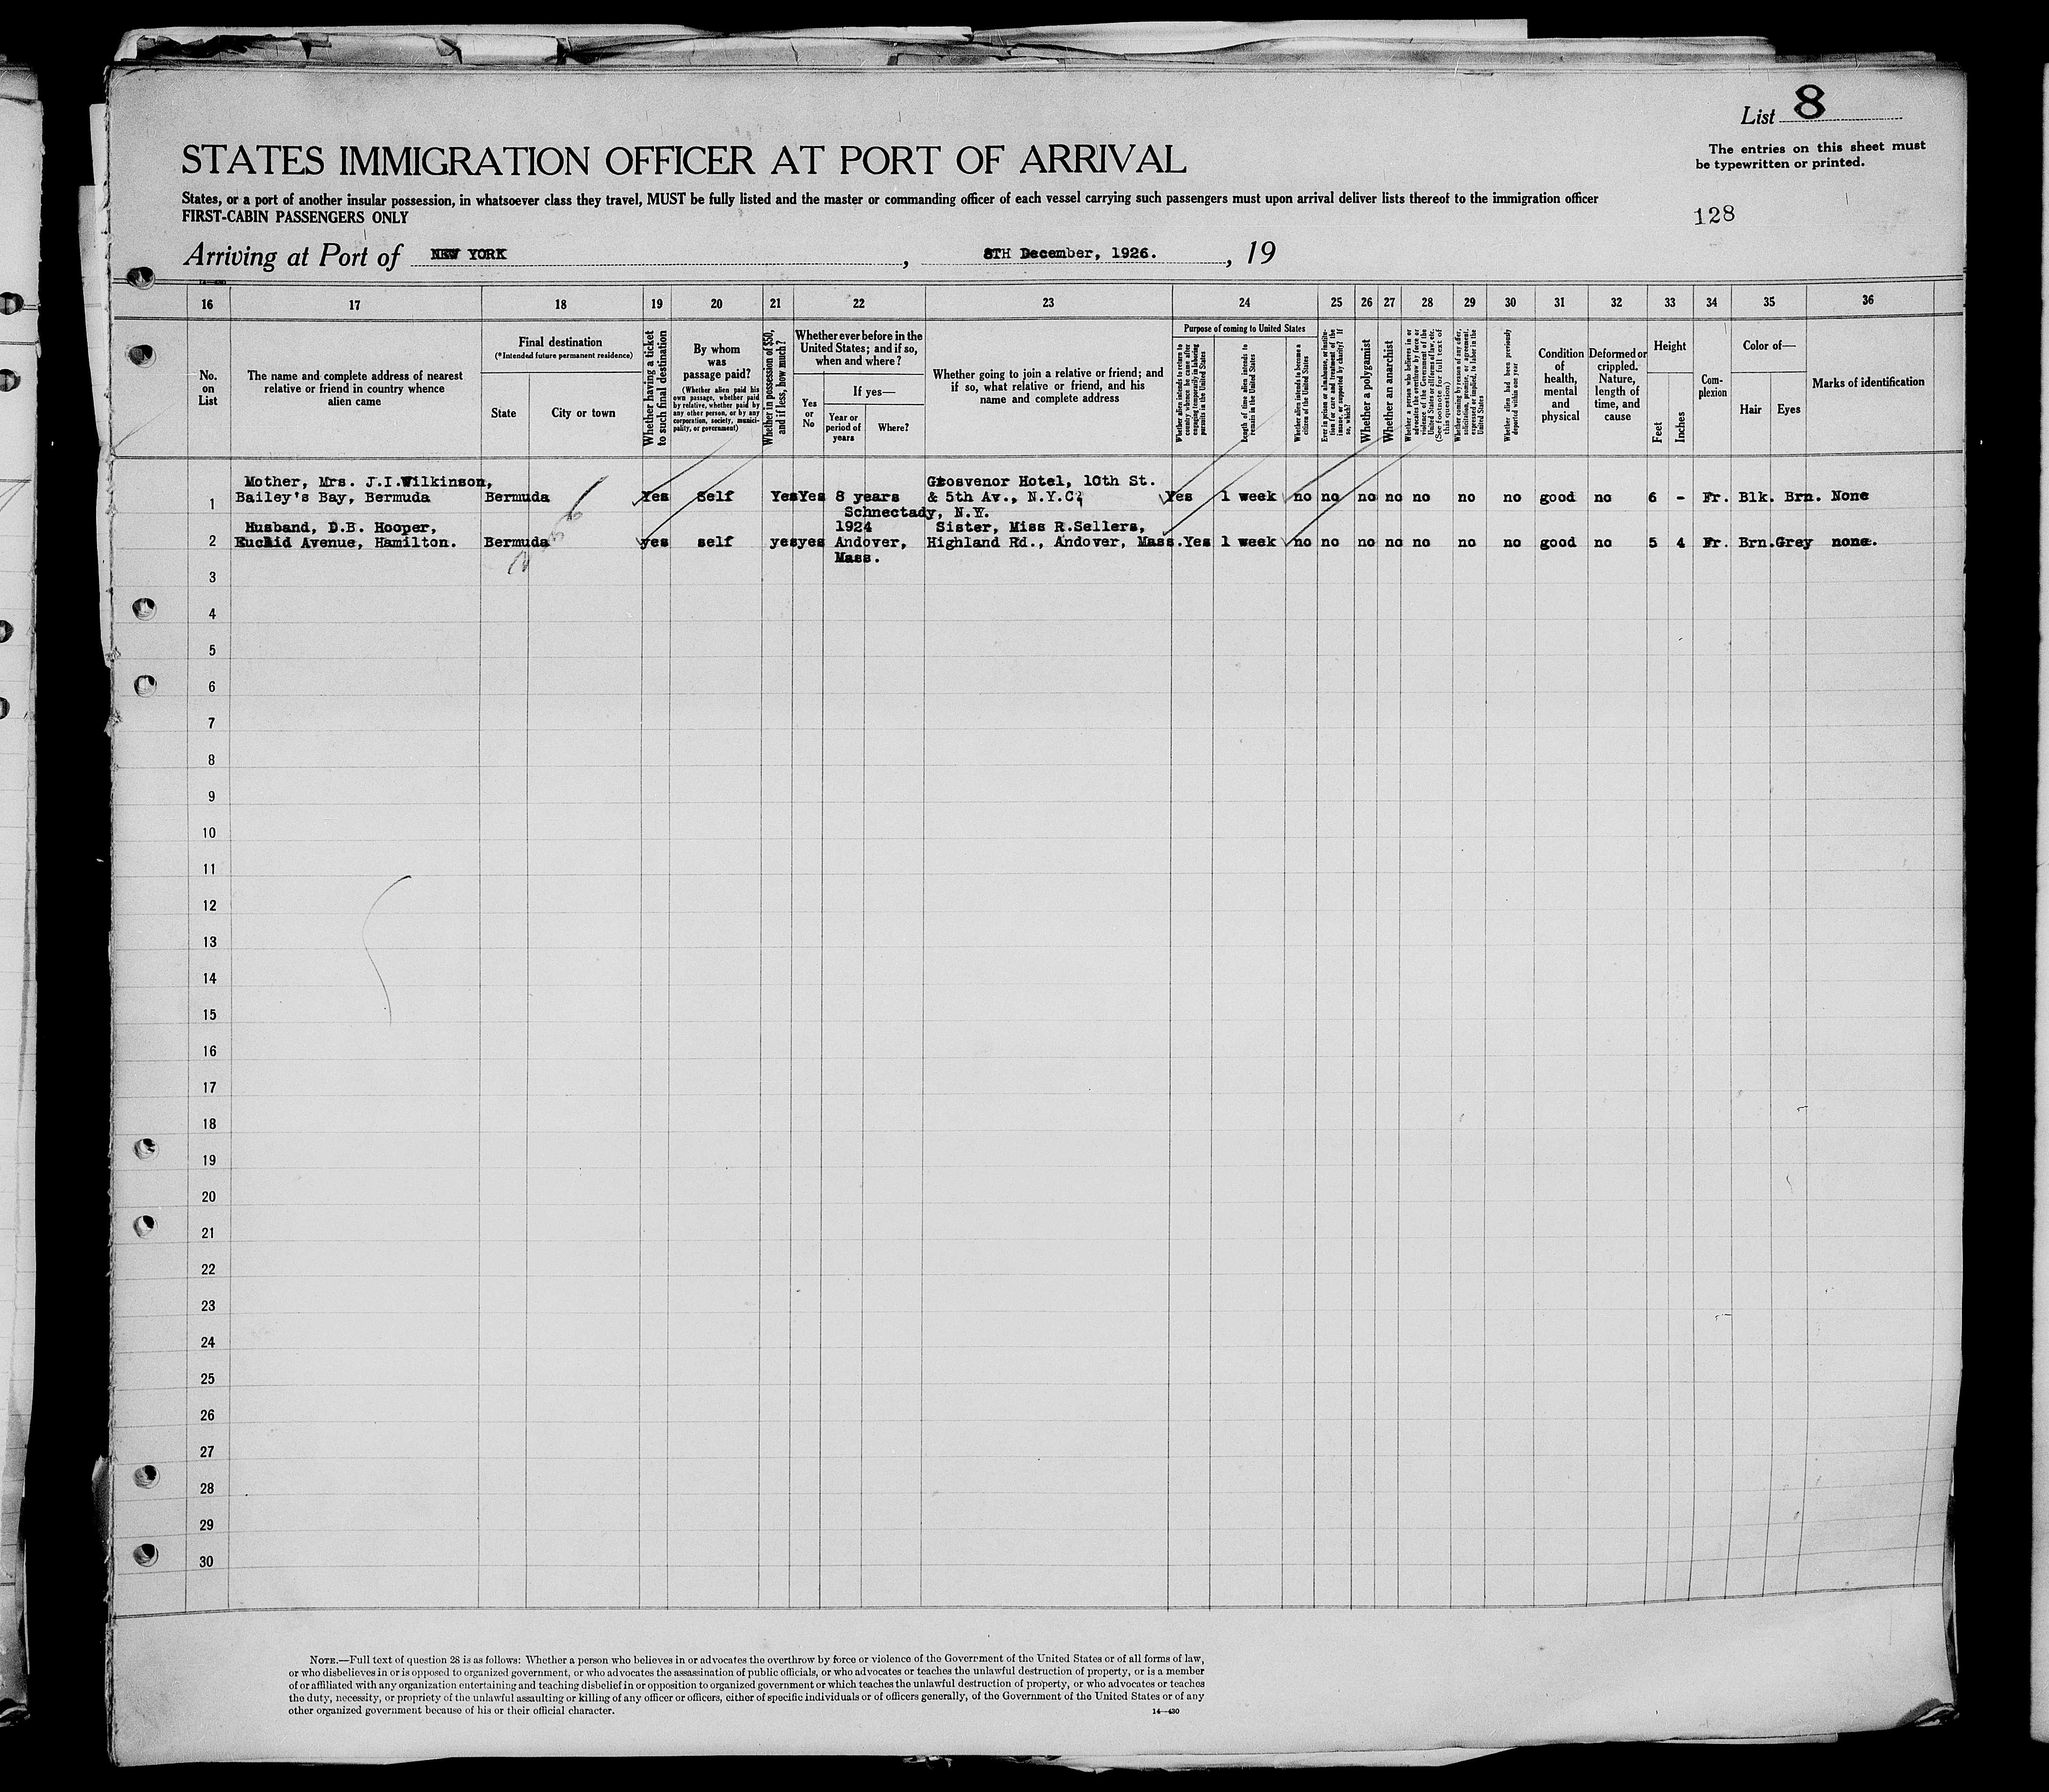 List 8
The entries on this sheet must
be typewritten or printed.
STATES IMMIGRATION OFFICER AT PORT OF ARRIVAL
States, or a port of another insular possession, in whatsoever class they travel, MUST be fully listed and the master or commanding officer of each vessel carrying such passengers must upon arrival deliver lists thereof to the immigration officer
FIRST-CABIN PASSENGERS ONLY
128
Arriving at Port of NEW YORK, 8TH December, 1926., 19
14-430
16 17 18 19 20 21 22 23 24 25 26 27 28 29 30 31 32 33 34 35 36
No.
on
List
The name and complete address of nearest
relative or friend in country whence
alien came
Final destination
(*Intended future permanent residence)
State
City or town
Whether having a ticket
to such final destination
By whom
was
passage paid?
(Whether alien paid his
own passage, whether paid
by relative, whether paid by
any other person, or by any
corporation, society, munici-
pality, or government)
Whether in possession of $50,
and if less, how much?
Whether ever before in the
United States; and if so,
when and where?
Yes
or
No
If yes—
Year or
period of
years
Where?
Whether going to join a relative or friend; and
if so, what relative or friend, and his
name and complete address
Purpose of coming to United States
Whether alien intends to return to
country whence he came after
engaging temporarily in laboring
pursuits in the United States
Length of time alien intends to
remain in the United States
Whether alien intends to become a
citizen of the United States
Ever in prison or almshouse, or institu-
tion for care and treatment of the
insane, or supported by charity? If
so, which?
Whether a polygamist
Whether an anarchist
Whether a person who believes in or
advocates the overthrow by force or
violence of the Government of the
United States or all forms of law, etc.
(See footnote for full text of
this question)
Whether coming by reason of any offer,
solicitation, promise, or agreement,
expressed or implied, to labor in the
United States
Whether alien had been previously
deported within one year
Condition
of
health,
mental
and
physical
Deformed or
crippled.
Nature,
length of
time, and
cause
Height
Feet
Inches
Com-
plexion
Color of—
Hair
Eyes
Marks of identification
Mother, Mrs. J.I.Wilkinson, Grosvenor Hotel, 10th St.
1 Bailey's Bay, Bermuda Bermuda Yes Self Yes Yes 8 years & 5th Av., N.Y.C. Yes 1 week no no no no no no no good no 6 - Fr. Blk. Brn. None
Schnectady, N.Y.
Husband, D.B. Hooper, 1924 Sister, Miss R.Sellers,
2 Euclid Avenue, Hamilton. Bermuda yes self yes yes Andover, Highland Rd., Andover, Mass. Yes 1 week no no no no no no no good no 5 4 Fr. Brn. Grey none.
Mass.
3
4
5
6
7
8
9
10
11
12
13
14
15
16
17
18
19
20
21
22
23
24
25
26
27
28
29
30
NOTE.—Full text of question 28 is as follows: Whether a person who believes in or advocates the overthrow by force or violence of the Government of the United States or of all forms of law,
or who disbelieves in or is opposed to organized government, or who advocates the assassination of public officials, or who advocates or teaches the unlawful destruction of property, or is a member
of or affiliated with any organization entertaining and teaching disbelief in or opposition to organized government or which teaches the unlawful destruction of property, or who advocates or teaches
the duty, necessity, or propriety of the unlawful assaulting or killing of any officer or officers, either of specific individuals or of officers generally, of the Government of the United States or of any
other organized government because of his or their official character.
14-430